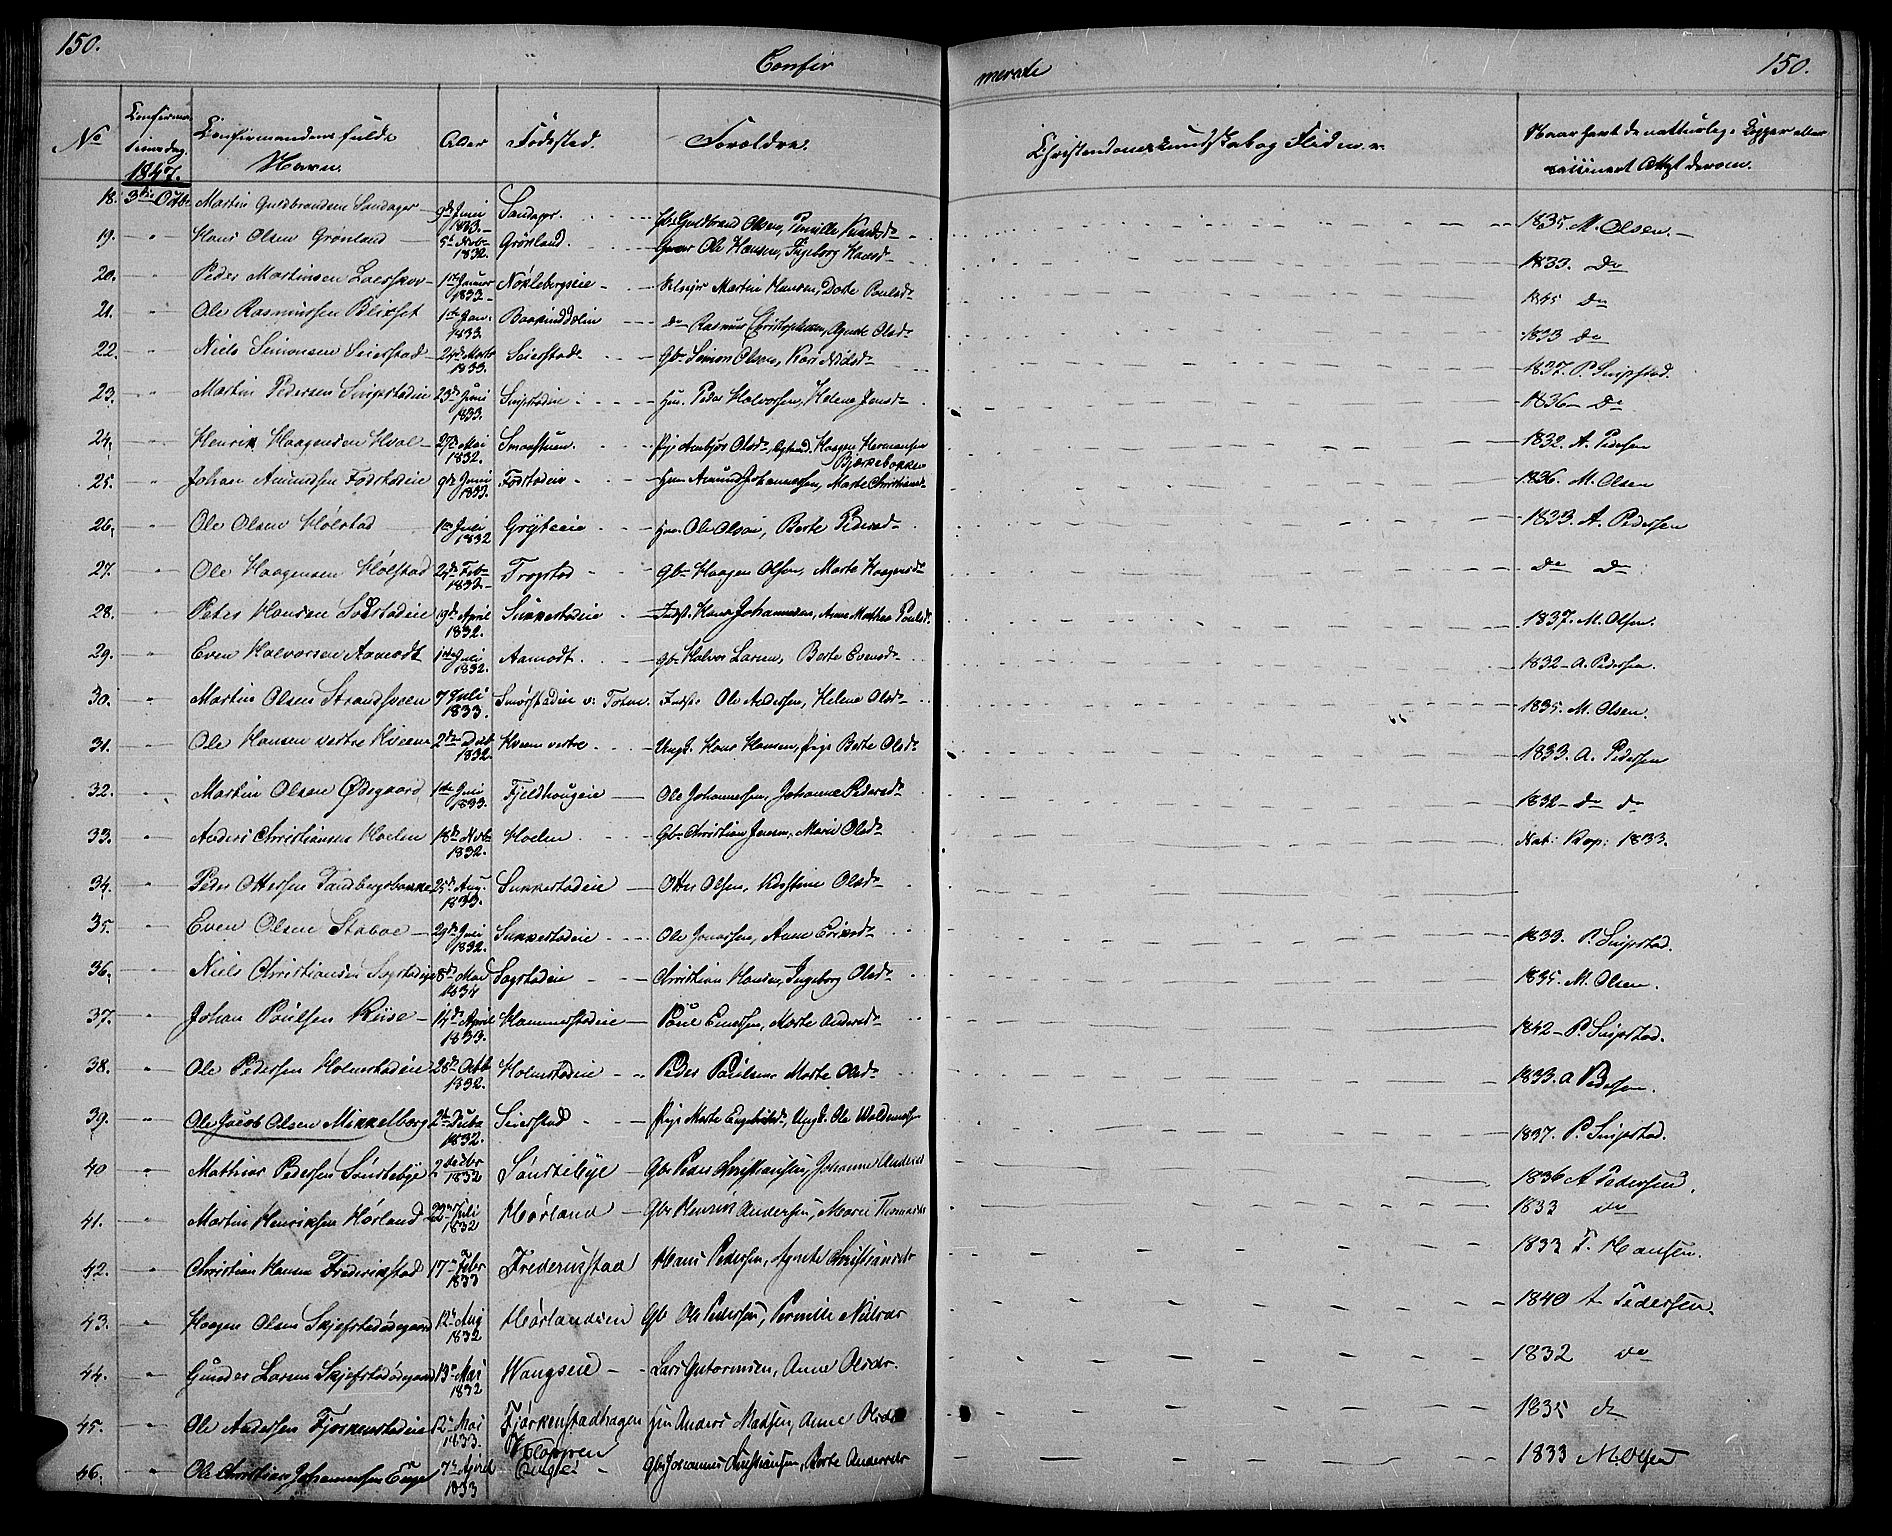 150.
Confir
merede
150.
No
Confirma-
tionsdag.
1847.
Confirmandens fulde
Navn.
Alder
Fødested.
Forældre.
Christendomskundskab og Flid m. v.
Naar havt de naturlige Kopper eller
vaccineret Attest derom.
18. 3die Octb. Martin Guldbrandsen Sandager 9de Juni 1833. Sandager. Gb. Guldbrand Olsen, Pernille Knudsd. 1835 M. Olsen.
19. " Hans Olsen Grønland 5te Novb. 1832. Grønland. Ole Hansen, Ingeborg Hansd. 1833. Do
20. " Peder Martinsen 1ste Januar 1833 Nøklebergseie Martin Hansen, Dorte Poulsd. 1845 Do
21. " Ole Rasmussen Blikset 1ste Jan. 1833. Do Rasmus Christophersen, Agnete Olsd. 1833 Do
22. " Niels Simonsen Seierstad 24de Marts 1833. Seierstad Gb. Simon Olsen, Kari Nilsd. 1837. P. Snipstad.
23. " Martin Pedersen Snipstadeie 23de Juni 1833. Snipstadeie Hm. Peder Halvorsen, Helene Jensd. 1836 Do
24. " Henrik Haagensen Hval 27de Mai 1832. Smedstuen. Pige Olsd., Haagen Hermansen
Bjerkebakken 1832. A. Pedersen
25. " Johan Amundsen Fodstadeie 9de Juni 1833. Fodstadeie Hm. Amund Johannessen, Marte Christiansd. 1836. M. Olsen
26. " Ole Olsen Hølstad 1ste Juli 1832 Gryteeie Hm. Ole Olsen, Berte Pedersd. 1833. A. Pedersen
27. " Ole Haagensen Hølstad 24de Feb. 1832. Frogstad Gb. Haagen Olsen, Marte Haagensd. Do Do
28. " Peter Hansen 19de April 1832. Sukkestadeie Indst. Hans Johannesen, Anne Mathea Poulsd. 1837. M. Olsen.
29. " Even Halvorsen Aamodt 1ste Juli 1832. Aamodt. Gb. Halvor Larsen, Berte Evensd. 1832 A. Pedersen.
30. " Martin Olsen Strandsveen 7 Juli 1833. Smørstadeie v: Toten Indst. Ole Andersen, Helene Olsd. 1835. M. Olsen.
31. " Ole Hansen vestre Hveem 2den Decb. 1832. Hveem vestre. Ungk. Hans Hansen, Pige Berte Olsd. 1833. A. Pedersen
32. " Martin Olsen Ødegaard 1ste Juni 1833. Fjeldhaugeie Ole Johannessen, Johanne Pedersd. 1832 Do Do
33. " Anders Christiansen Hoelen 18de Novb. 1832. Hoelen Gb. Christian Jensen, Marie Olsd. Nat: Kop: 1833.
34. " Peder Ottersen Sandbergsbakke 25de Aug. 1833. Sukkestadeie Otter Olsen, Kirstine Olsd.
35. " Even Olsen Staboe 29de Juli 1832. Sukkestadeie Ole Jonassen, Anne Eriksd. 1833. P. Snipstad.
36. " Niels Christiansen Sogstadeie 8de Mai 1834 Sogstadeie Christian Hansen, Ingeborg Olsd. 1835. M. Olsen.
37. " Johan Poulsen Riise 14de April 1833. Hammerstadeie Poul Ennersen, Marte Andersd. 1842 P. Snipstad.
38. " Ole Pedersen Holmstadeie 28de Octb. 1832. Holmstadeie Peder Poulsen, Marte Olsd. 1833. A Pedersen.
39. " Ole Jacob Olsen Mikkelborg 2den Decbr. 1832. Seierstad Pige Marte Engebretsd., Ungk. Ole Waldemarsen 1837. P. Snipstad.
40 " Mathias Pedersen Sønstebye 2 Decbr 1832 Sønstebye Gbr Peder Christiansen, Johanne Andersd 1836 A Pedersen.
41. " Martin Henriksen Hørland 22de Juli 1832 Hørland Gbr Henrik Andersen, Marie Thomasdr 1833 do
42. " Christian Hansen Frederikstad 17de Febr 1833 Frederikstad Hans Pedersen, Agnete Christiansdr 1833 F. Hansen.
43. " Haagen Olsen Skjefstadødegaard 12te Aug 1832 Hørlandeien Gb Ole Pedersen, Pernille Nielsdr 1840 A. Pedersen.
44. " Gunder Larsen Skjefstadødegaard 13de Mai 1832 Wangseie Lars Gutormsen, Anne Olsdr. 1832 do
45. " Ole Andersen Fjørkenstadeie 12te Mai 1833. Fjørkenstadhagen Hm Anders Madsen, Anne Olsdr 1835 do
Kloppen
46. " Ole Christian Johannessen Enge 7de April 1833 Engeie Gbr Johannes Christiansen, Berte Andersdr 1833 M. Olsen